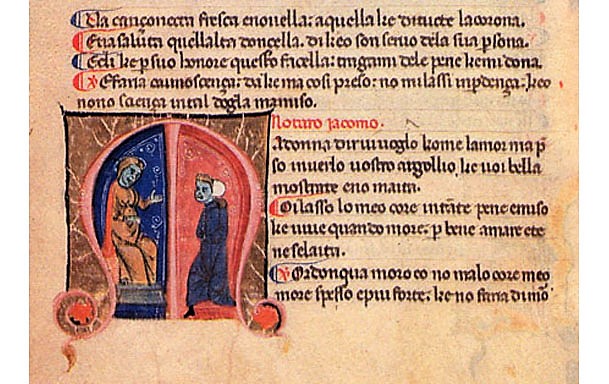 Ua cançonecta fresca enouella: aquella ke ditucte lacorona.
Etia saluta quellalta doncella. dikeo son seruo dela sua psona.
Edi ke psuo honore questo facella: tragami dele pene kemi dona.
Efaria canoscença: dake ma cosi preso: no milassi inpdença: keo
nono sacença intal dogla mamiso.
Notaro jacomo.
Madonna diruiuoglo kome lamor ma p
so inuerlo uostro argollio. ke uoi bella
mostrate eno maita.
Oilasso lo meo core intate pene emiso
ke uiue quando more. p bene amare ete
neselaita.
Ordonqua moro eo no malo core meo
more spesso epiu forte. ke no faria dimo